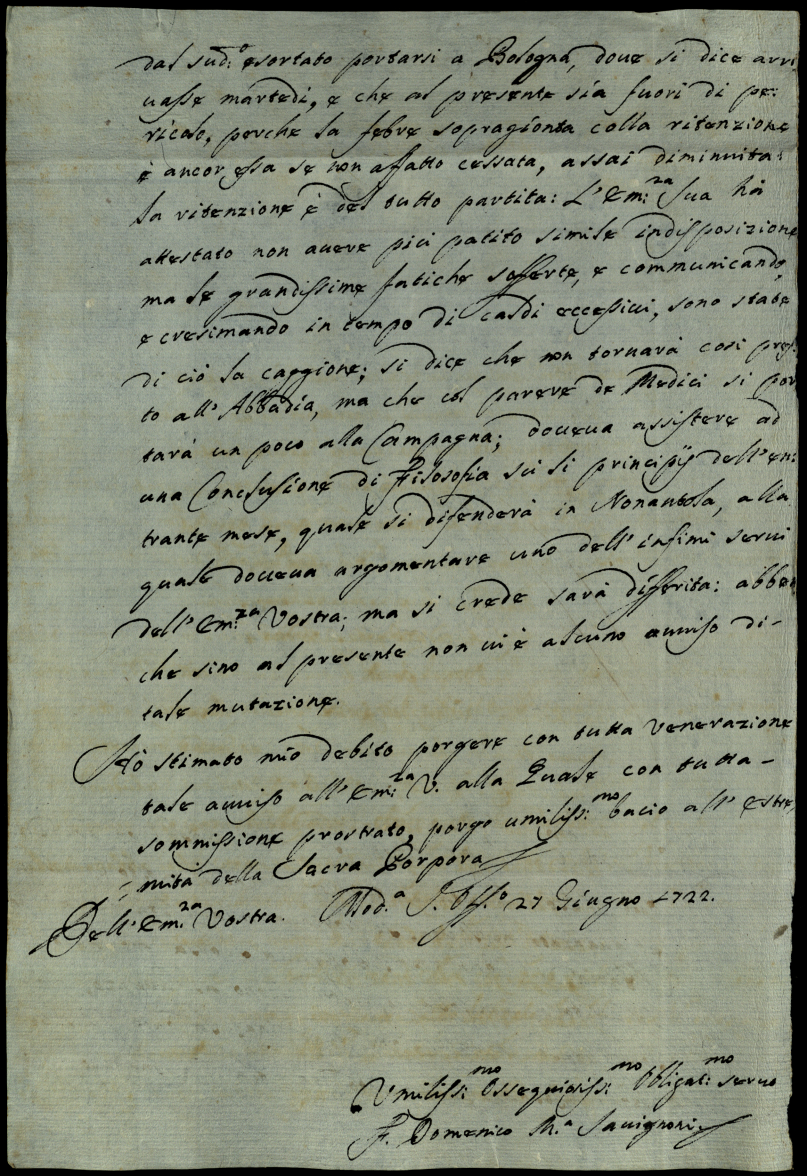 dal sud.º esortato portarsi a Bologna, doue si dice arri
uasse martedi, e che al presente sia fuori di pe:
ricolo, perche la febre sopragionta colla ritenzione
è ancor essa se non affatto cessata, assai diminuita:
la ritenzione è del tutto partita: L'Em:za Sua hà
attestato non auere più patito simile indisposizione
ma le grandissime fatiche sofferte, e communicando,
e cresimando in tempo di caldi eccessiui, sono state
di ciò la caggione; si dice che non tornarà così pres:
to all'Abbadia, ma che col parere de Medici si por
tarà un poco alla Campagna; doueua assistere ad
una Conclusione di Filosofia su li principij dell'en:
trante mese, quale si difenderà in Nonantola, alla
quale doueua argomentare uno dell'infimi serui
dell'Em:za Vostra; ma si crede sarà differita: abben
che sino al presente non ui è alcuno auuiso di-
tale mutazione.
Hò stimato mio debito porgere con tutta venerazione
tale auuiso all'Em:za V. alla Quale con tutta-
sommissione prostrato, porgo umiliss:mo bacio all'estre,
mità della Sacra Porpora
Dell'Em.za Vostra. Mod.a S. Off.o 27 Giugno 1722.
Vmiliss:mo Ossequiosiss:mo Obligat:mo seruo
F. Domenico M.a Sauignoni